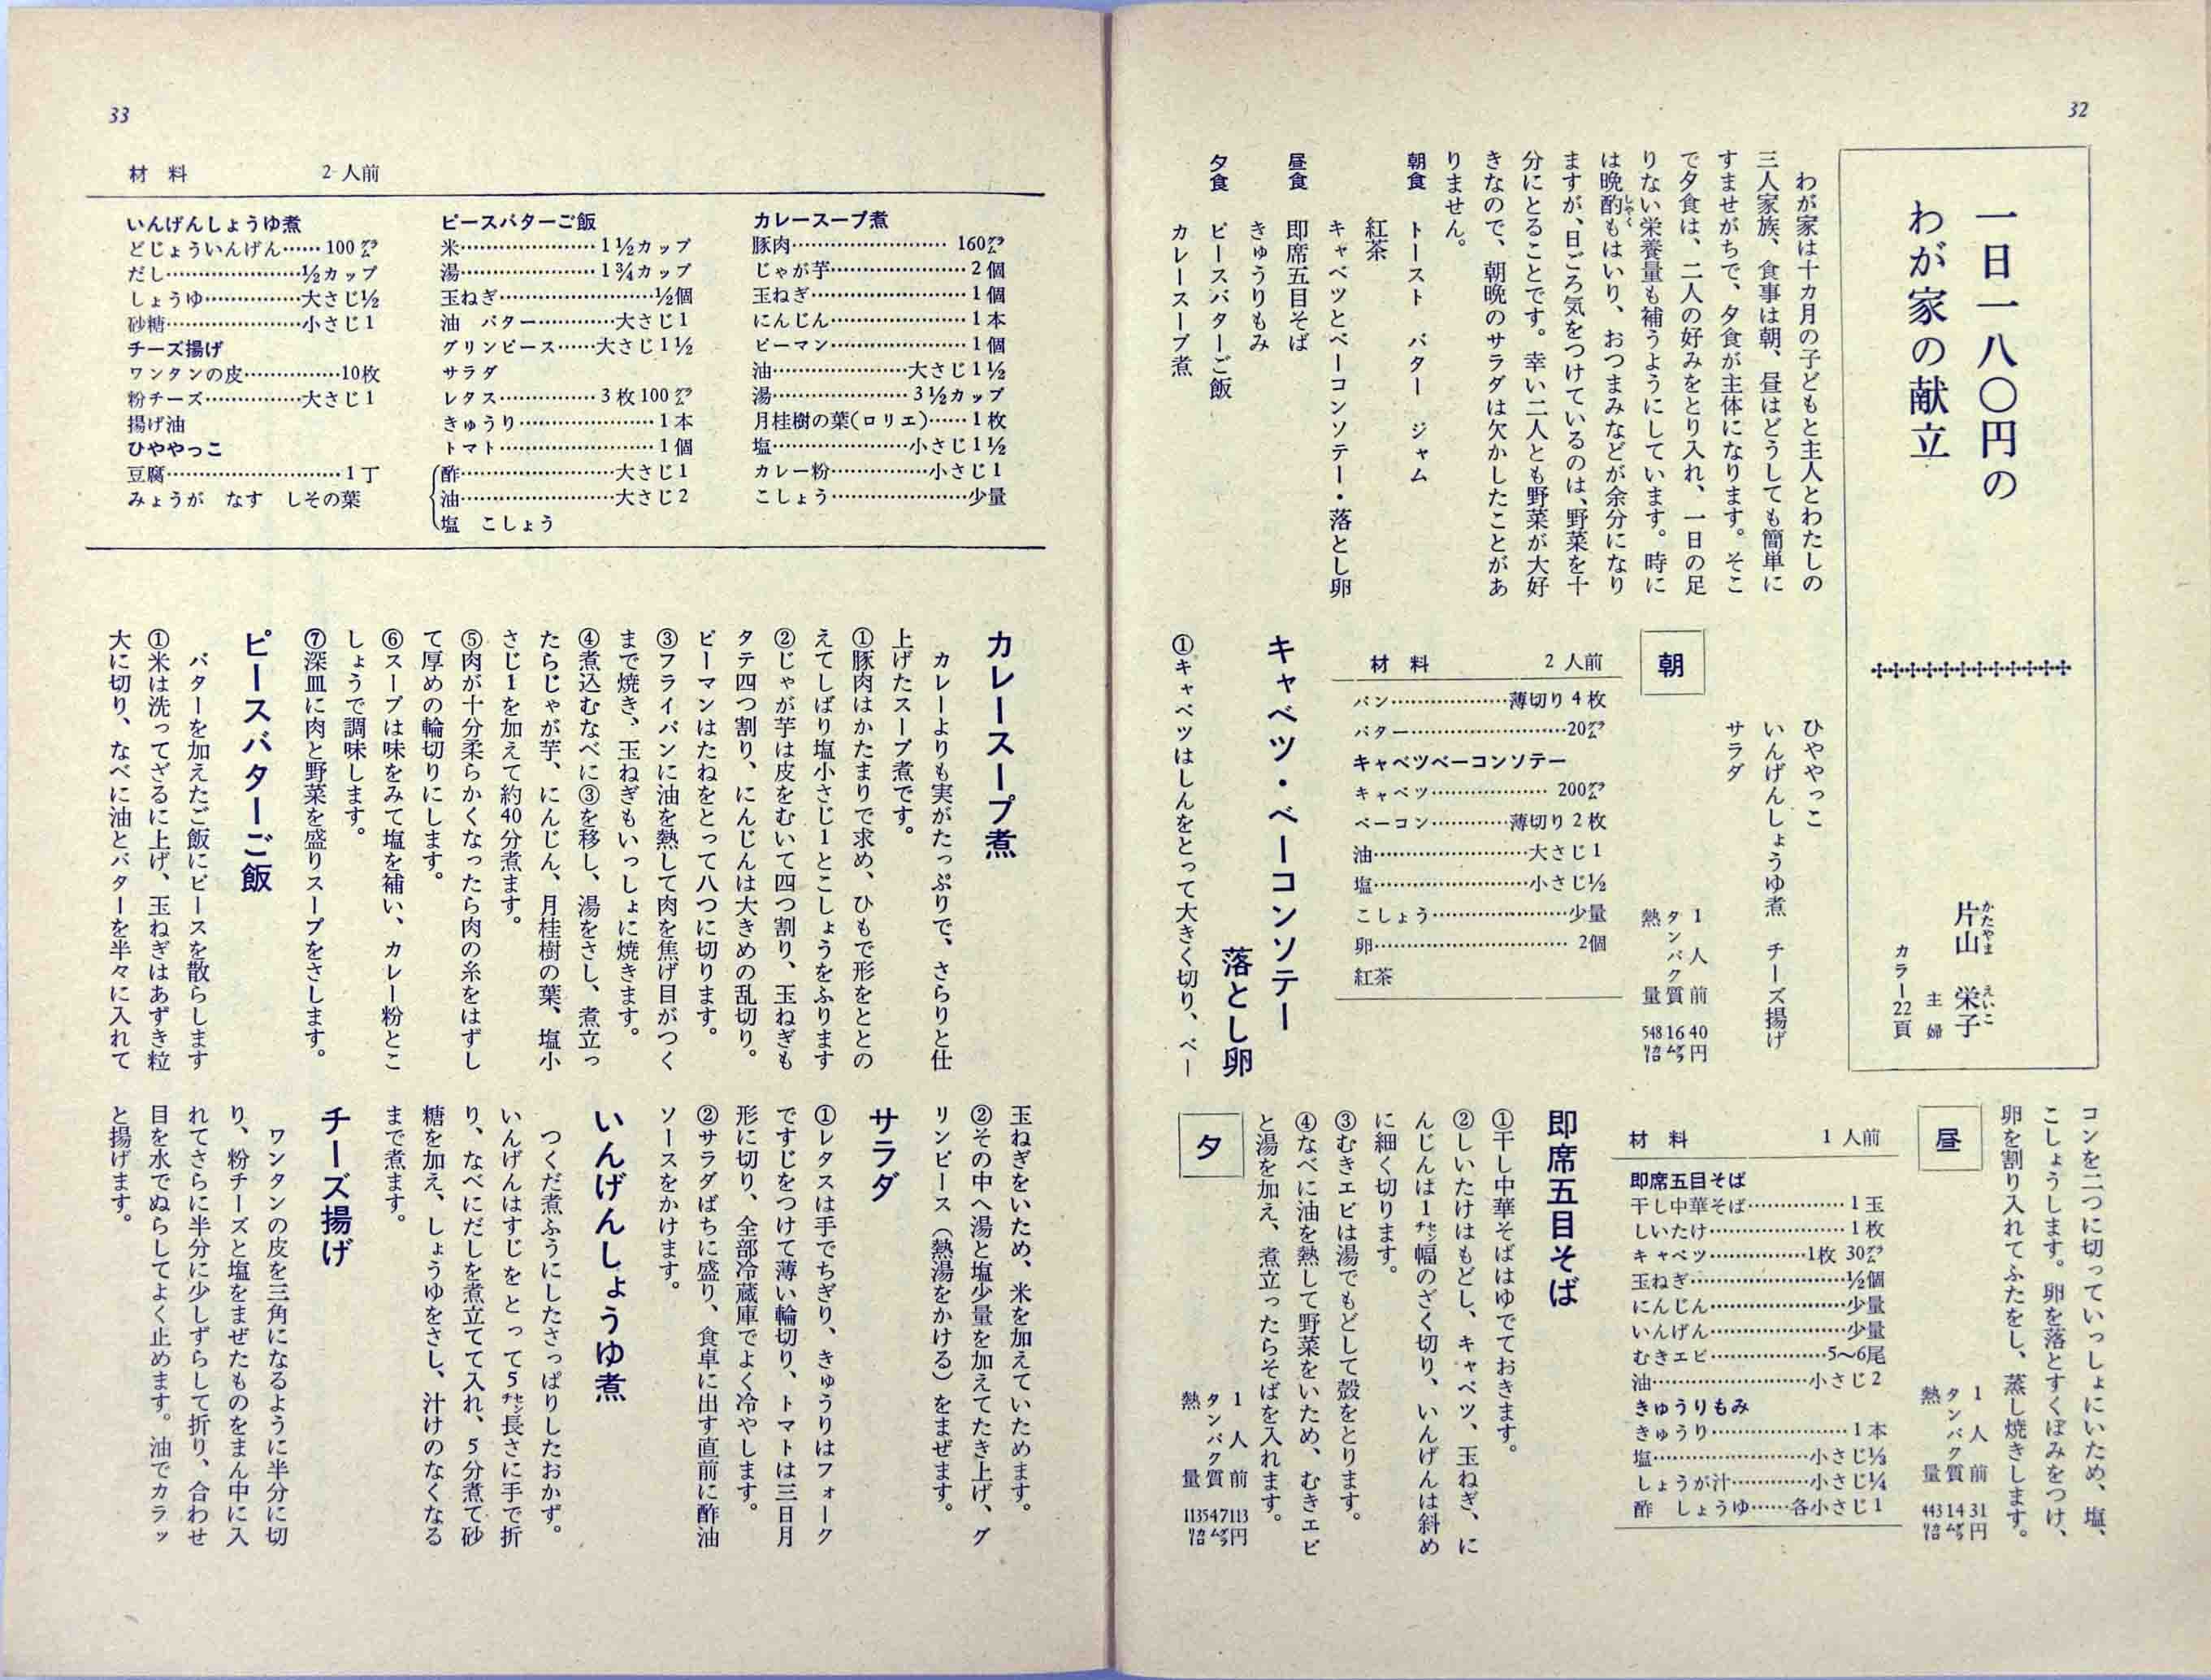 32
一日一八〇円の
わが家の献立
片山 栄子
かたやま えいこ
主婦
カラー22頁
わが家は十カ月の子どもと主人とわたしの
三人家族、食事は朝、昼はどうしても簡単に
すませがちで、夕食が主体になります。そこ
で夕食は、二人の好みをとり入れ、一日の足
りない栄養量も補うようにしています。時に
は晩酌もはいり、おつまみなどが余分になり
しゃく
ますが、日ごろ気をつけているのは、野菜を十
分にとることです。幸い二人とも野菜が大好
きなので、朝晩のサラダは欠かしたことがあ
りません。
朝食 トースト バター ジャム
紅茶
キャベツとベーコンソテー・落とし卵
昼食 即席五目そば
きゅうりもみ
夕食 ピースバターご飯
カレースープ煮
ひややっこ
いんげんしょうゆ煮 チーズ揚げ
サラダ
朝
1人前 40円
タンパク質 16グラム
熱量 548カロリー
材料 2人前
パン………薄切り4枚
バター………20グラム
キャベツベーコンソテー
キャベツ………200グラム
ベーコン………薄切り2枚
油………大さじ1
塩………小さじ½
こしょう………少量
卵………2個
紅茶
キャベツ・ベーコンソテー
落とし卵
①キャベツはしんをとって大きく切り、ベー
コンを二つに切っていっしょにいため、塩、
こしょうします。卵を落とすくぼみをつけ、
卵を割り入れてふたをし、蒸し焼きします。
昼
1人前 31円
タンパク質 14グラム
熱量 443カロリー
材料 1人前
即席五目そば
干し中華そば………1玉
しいたけ………1枚
キャベツ………1枚 30グラム
玉ねぎ………½個
にんじん………少量
いんげん………少量
むきエビ………5〜6尾
油………小さじ2
きゅうりもみ
きゅうり………1本
塩………小さじ⅓
しょうが汁………小さじ¼
酢 しょうゆ……各小さじ1
即席五目そば
①干し中華そばはゆでておきます。
②しいたけはもどし、キャベツ、玉ねぎ、に
んじんは1センチ幅のざく切り、いんげんは斜め
に細く切ります。
③むきエビは湯でもどして殻をとります。
④なべに油を熱して野菜をいため、むきエビ
と湯を加え、煮立ったらそばを入れます。
夕
1人前 113円
タンパク質 47グラム
熱量 1135カロリー
33
材料 2人前
カレースープ煮
豚肉………160グラム
じゃが芋………2個
玉ねぎ………1個
にんじん………1本
ピーマン………1個
油………大さじ1½
湯………3½カップ
月桂樹の葉(ロリエ)……1枚
塩………小さじ1½
カレー粉………小さじ1
こしょう………少量
ピースバターご飯
米………1½カップ
湯………1¾カップ
玉ねぎ………½個
油 バター………大さじ1
グリンピース……大さじ1½
サラダ
レタス………3枚100グラム
きゅうり………1本
トマト………1個
酢………大さじ1
油………大さじ2
塩 こしょう
いんげんしょうゆ煮
どじょういんげん……100グラム
だし………½カップ
しょうゆ………大さじ½
砂糖………小さじ1
チーズ揚げ
ワンタンの皮………10枚
粉チーズ………大さじ1
揚げ油
ひややっこ
豆腐………1丁
みょうが なす しその葉
カレースープ煮
カレーよりも実がたっぷりで、さらりと仕
上げたスープ煮です。
①豚肉はかたまりで求め、ひもで形をととの
えてしばり塩小さじ1とこしょうをふります
②じゃが芋は皮をむいて四つ割り、玉ねぎも
タテ四つ割り、にんじんは大きめの乱切り。
ピーマンはたねをとって八つに切ります。
③フライパンに油を熱して肉を焦げ目がつく
まで焼き、玉ねぎもいっしょに焼きます。
④煮込むなべに③を移し、湯をさし、煮立っ
たらじゃが芋、にんじん、月桂樹の葉、塩小
さじ1を加えて約40分煮ます。
⑤肉が十分柔らかくなったら肉の糸をはずし
て厚めの輪切りにします。
⑥スープは味をみて塩を補い、カレー粉とこ
しょうで調味します。
⑦深皿に肉と野菜を盛りスープをさします。
ピースバターご飯
バターを加えたご飯にピースを散らします
①米は洗ってざるに上げ、玉ねぎはあずき粒
大に切り、なべに油とバターを半々に入れて
玉ねぎをいため、米を加えていためます。
②その中へ湯と塩少量を加えてたき上げ、グ
リンピース(熱湯をかける)をまぜます。
サラダ
①レタスは手でちぎり、きゅうりはフォーク
ですじをつけて薄い輪切り、トマトは三日月
形に切り、全部冷蔵庫でよく冷やします。
②サラダばちに盛り、食卓に出す直前に酢油
ソースをかけます。
いんげんしょうゆ煮
つくだ煮ふうにしたさっぱりしたおかず。
いんげんはすじをとって5センチ長さに手で折
り、なべにだしを煮立てて入れ、5分煮て砂
糖を加え、しょうゆをさし、汁けのなくなる
まで煮ます。
チーズ揚げ
ワンタンの皮を三角になるように半分に切
り、粉チーズと塩をまぜたものをまん中に入
れてさらに半分に少しずらして折り、合わせ
目を水でぬらしてよく止めます。油でカラッ
と揚げます。